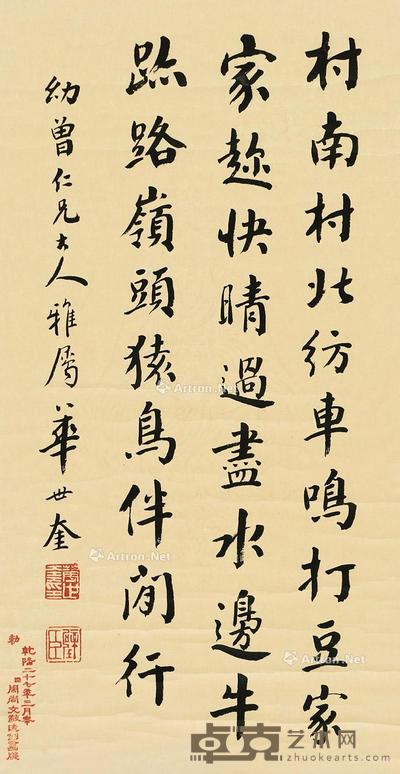 村南村北紡車鳴打豆家
家趂快晴過盡水邊牛
跡路嶺頭猿鳥伴閒行
幼曾仁兄大人雅屬 華世奎
乾隆二十七年三月奉
勅
Artron.Net
Artron.Net
Artron.Net
Artron.Net
卓克艺术网
www.zhuokearts.com